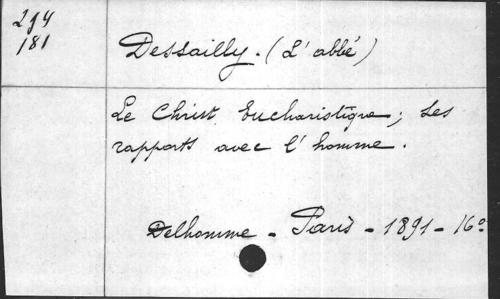 294
181
Dessailly. (L'abbé)
Le Christ Eucharistique; Ses
rapports avec l'homme.
Delhomme - Paris - 1891 - 16°